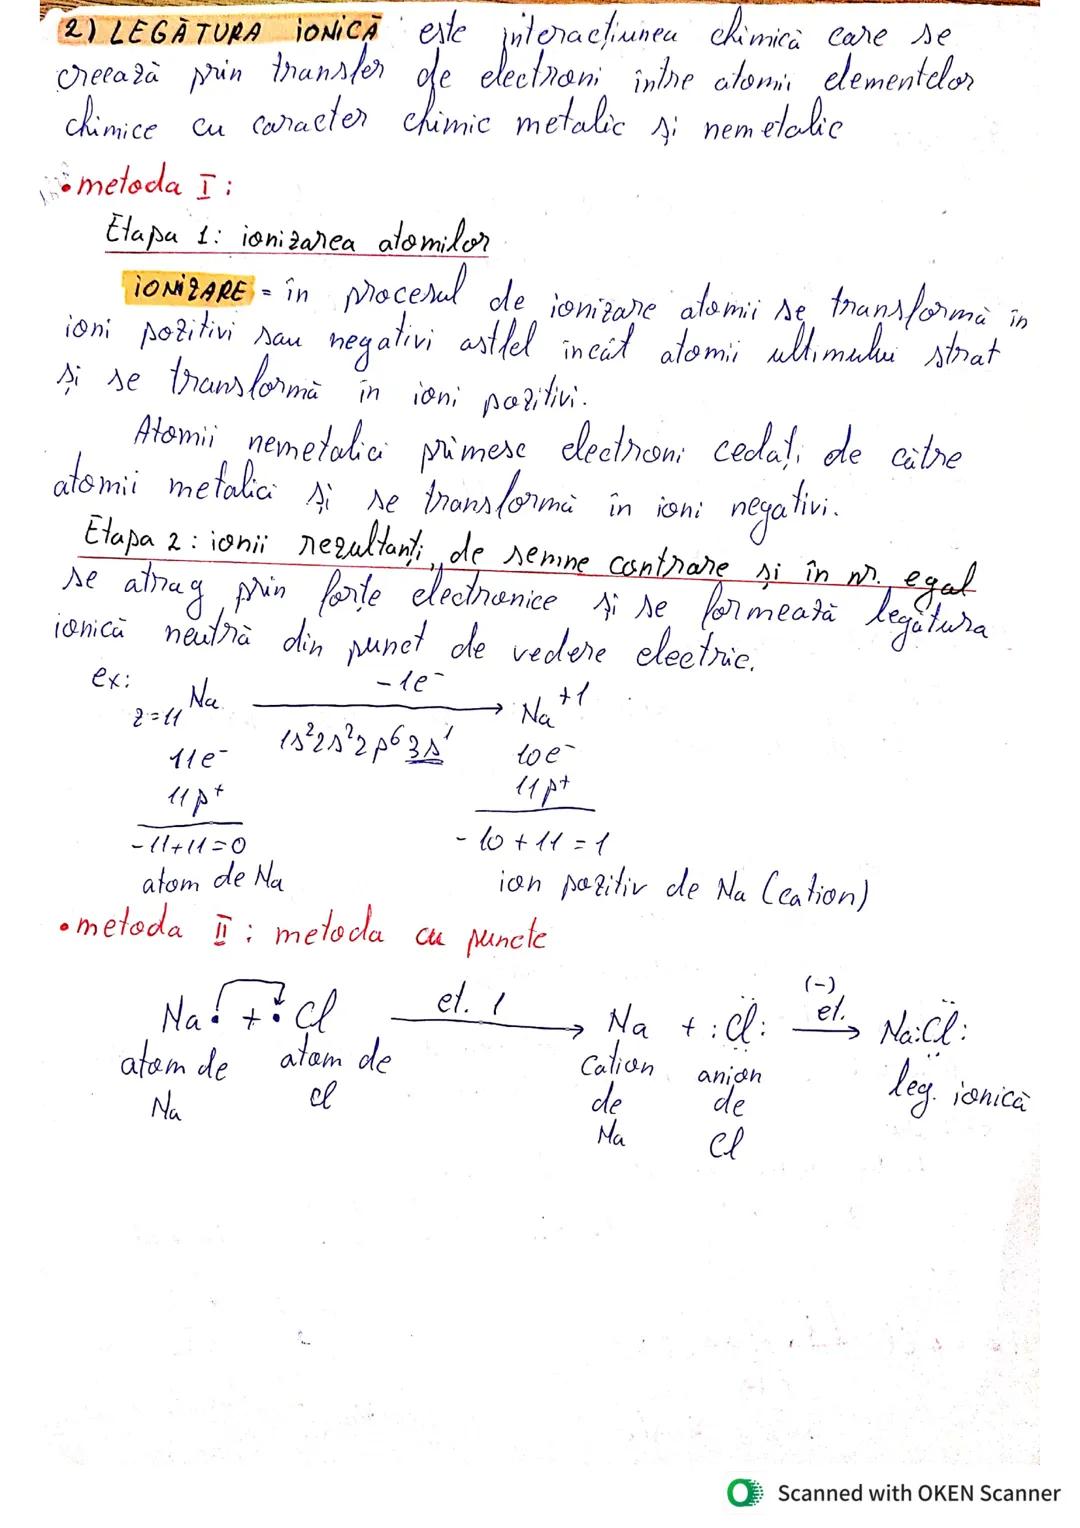 2) LEGĂTURA IONICĂ este interacțiunea chimică care se
creează prin transfer de electroni între atomii elementelor
chimice cu caracter chimic metalic și nemetalic
• metoda I:
Etapa 1: ionizarea atomilor
IONIZARE = în procesul de ionizare atomii se transformă în
ioni pozitivi sau negativi astfel încât atomii ultimului strat
și se transformă în ioni pozitivi.
Atomii nemetalici primesc electroni cedați de către
atomii metalici și se transformă în ioni negativi.
Etapa 2: ionii rezultanți, de semne contrare și în nr. egal
se atrag prin forțe electronice și se formează legătura
ionică neutră din punct de vedere electric.
ex: Na -1e⁻ → Na⁺¹
z=11 1s²2s²2p⁶3s¹
11e⁻ 10e⁻
11p⁺ 11p⁺
-11+11=0 -10+11=1
atom de Na ion pozitiv de Na (cation)
• metoda II: metoda cu puncte
Na· + :Cl et. 1 → Na + :Cl: (-) et. → Na:Cl:
atom de atom de Cation anion leg. ionică
Na Cl de de
Na Cl
Scanned with OKEN Scanner